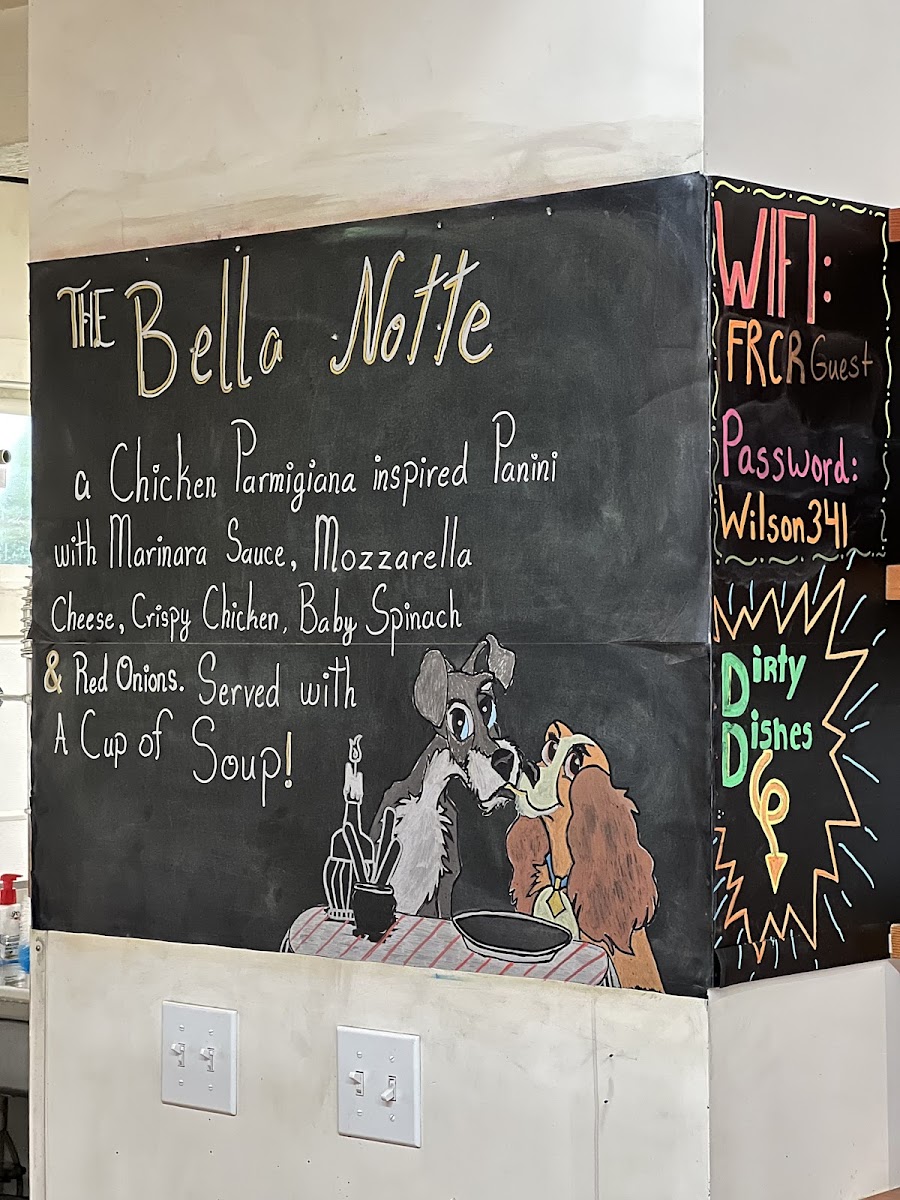 THE Bella Notte
a Chicken Parmigiana inspired Panini
with Marinara Sauce, Mozzarella
Cheese, Crispy Chicken, Baby Spinach
& Red Onions. Served with
A Cup of Soup!
WIFI:
FRCR Guest
Password:
Wilson341
Dirty
Dishes